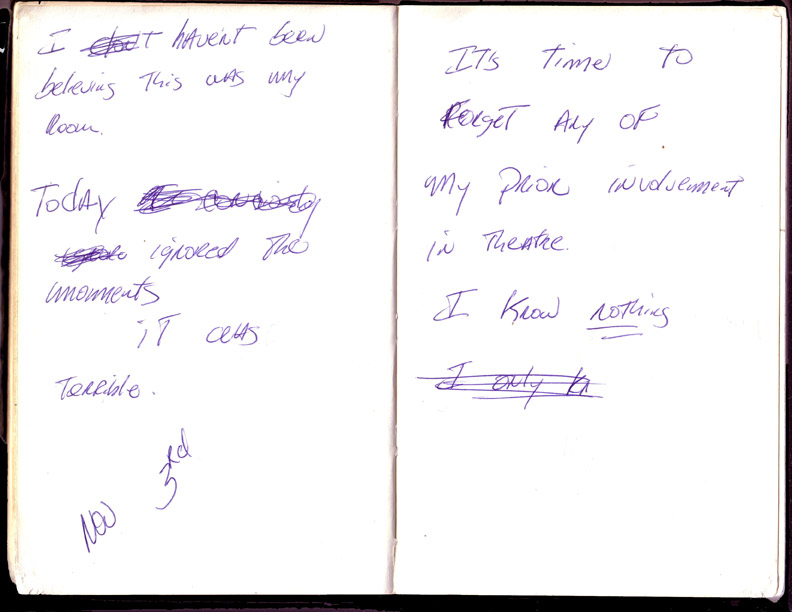 I don't haven't been
believing this was my
Room.
Today
ignored the
moments
it was
Terrible.
Nov 3rd
It's time to
Forget any of
my prior involvement
in theatre.
I know nothing
I only kn